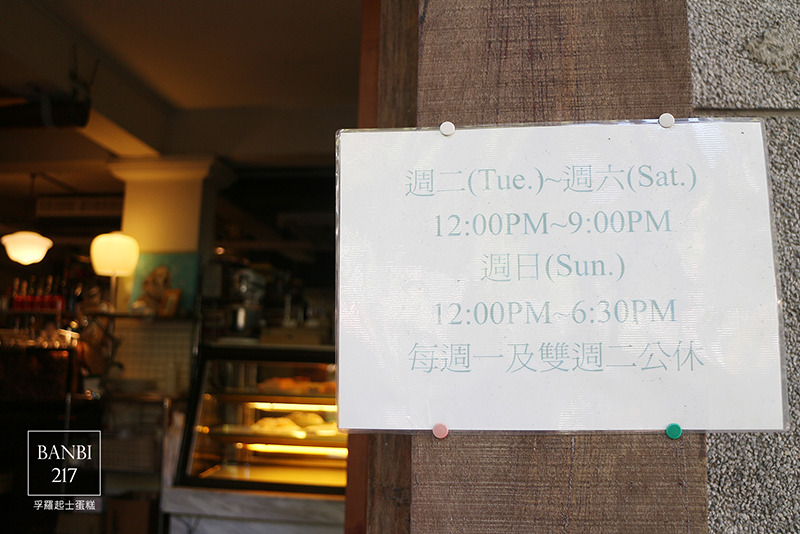 週二(Tue.)~週六(Sat.)
12:00PM~9:00PM
週日(Sun.)
12:00PM~6:30PM
每週一及雙週二公休
BANBI
217
孚羅起士蛋糕